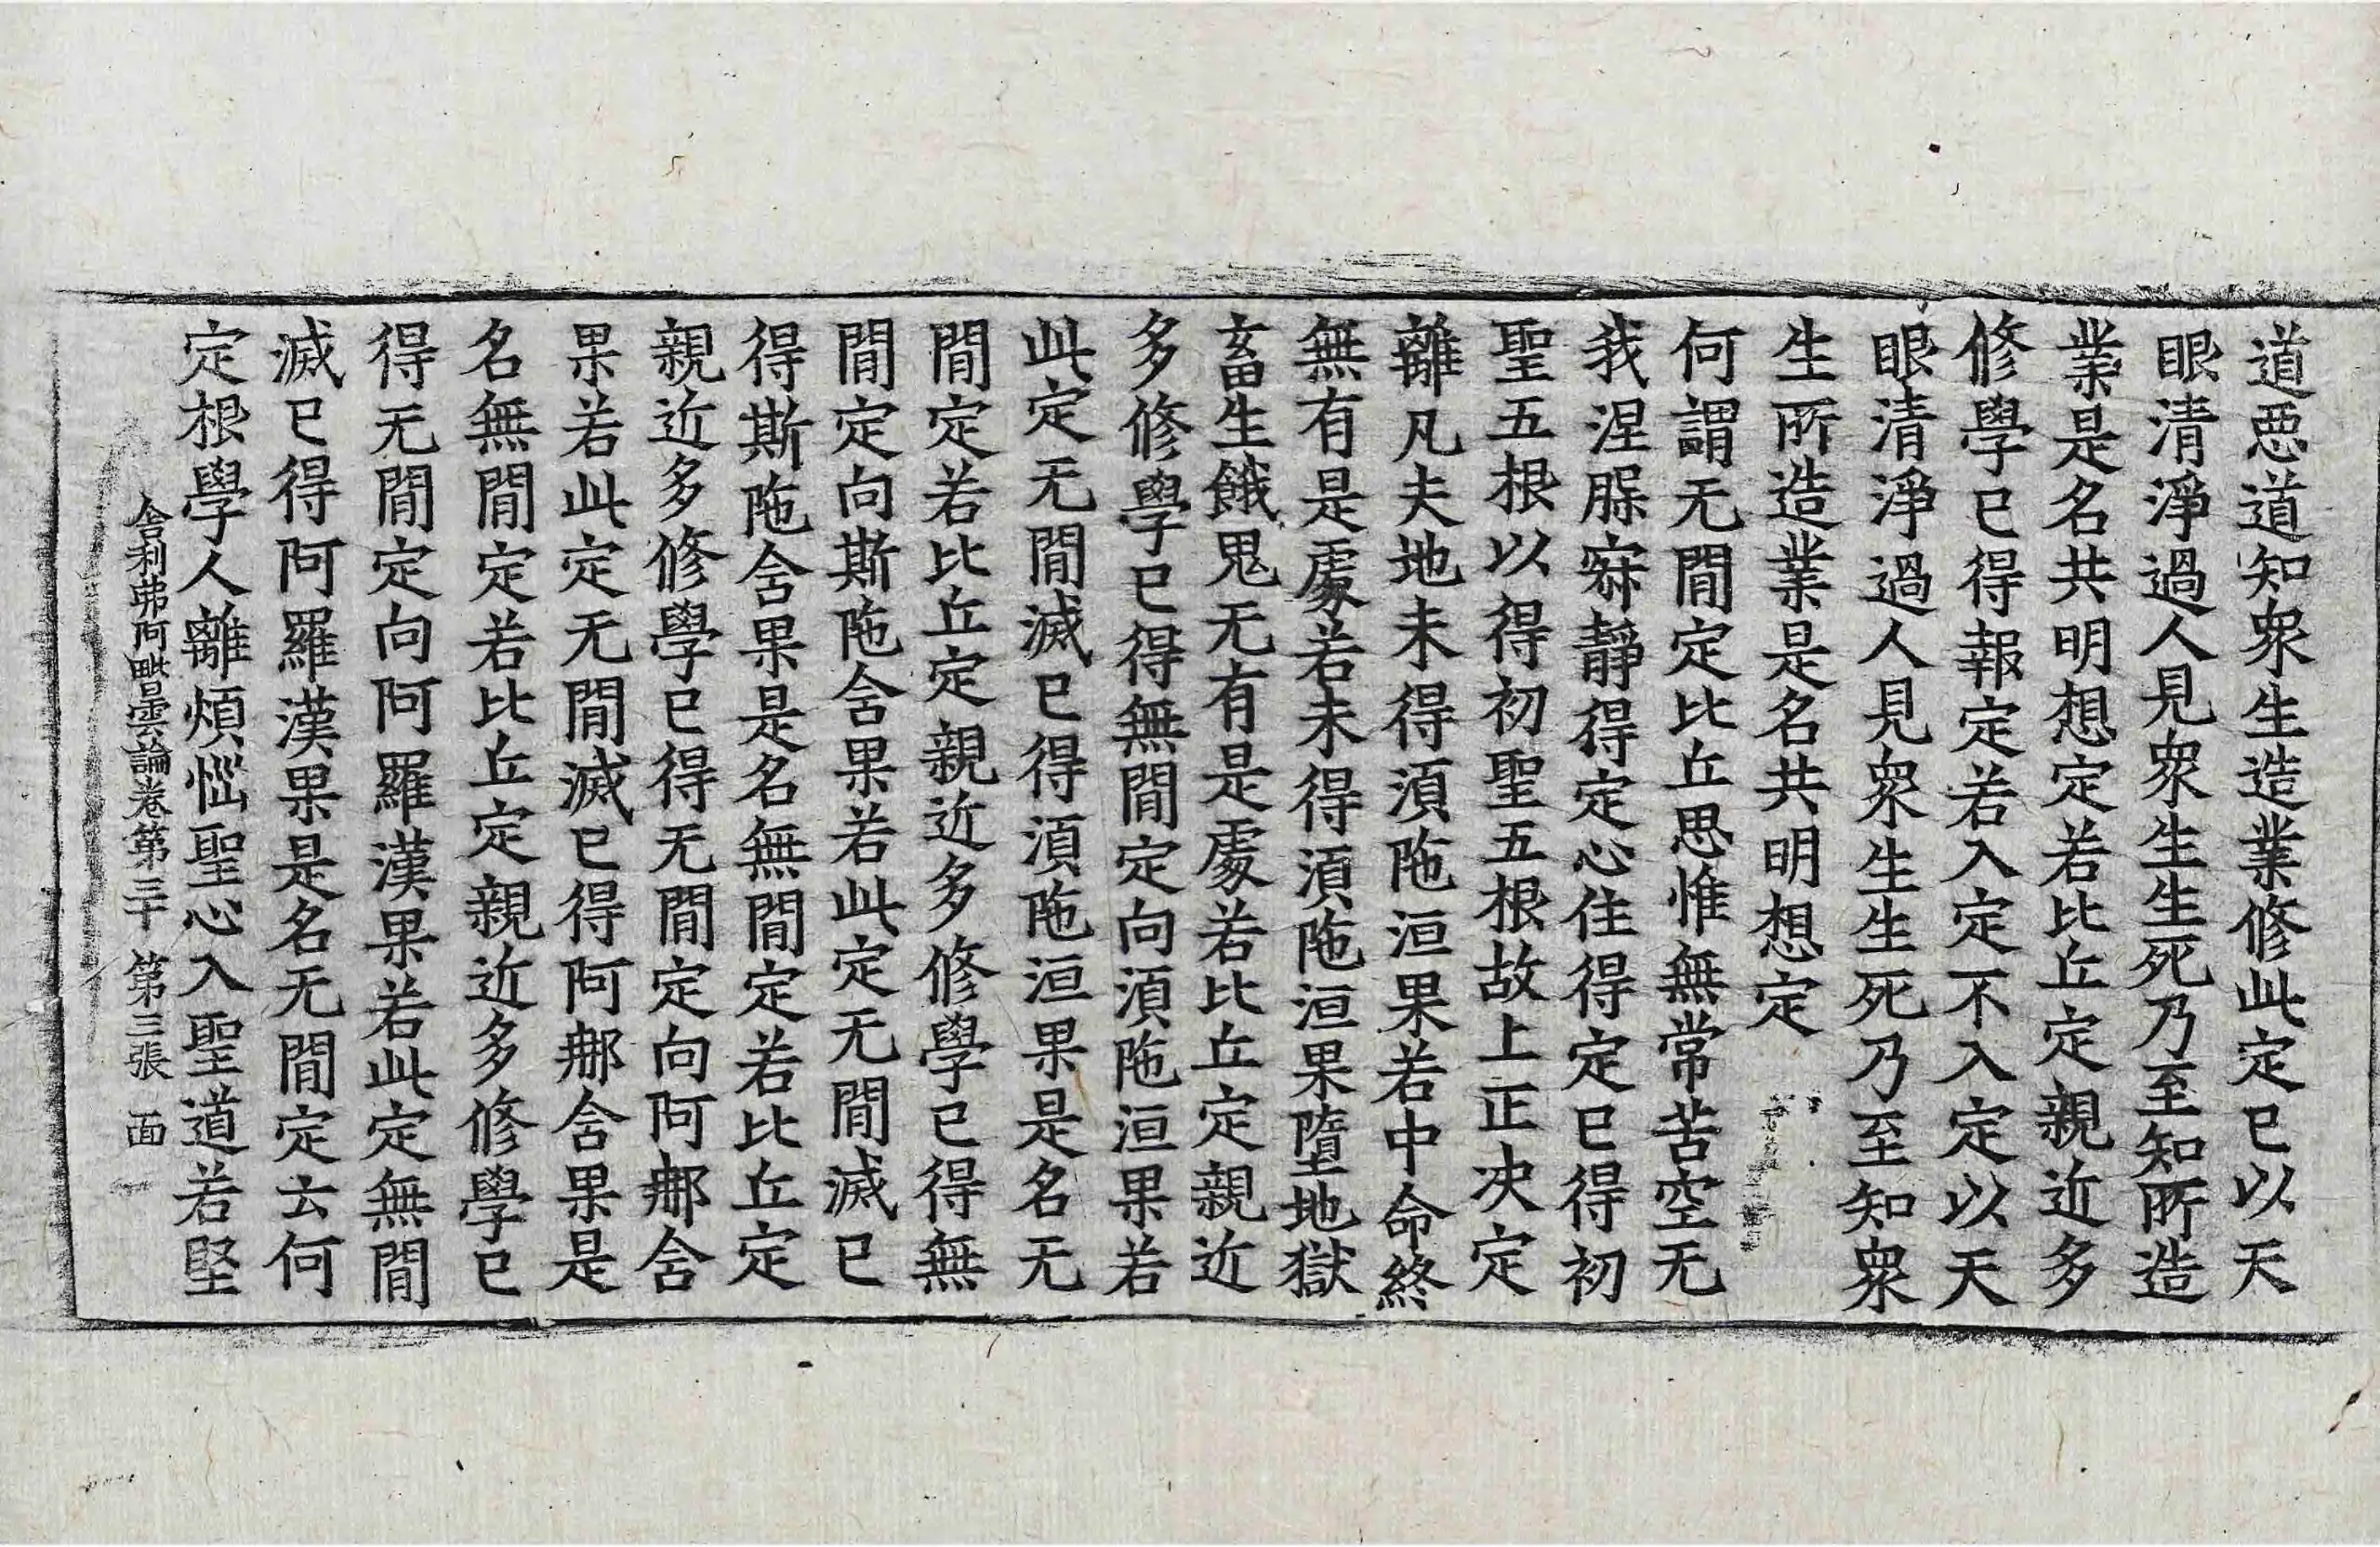 道惡道知衆生造業修此定已以天
眼清淨過人見衆生生死乃至知所造
業是名共明想定若比丘定親近多
修學已得報定若入定不入定以天
眼清淨過人見衆生生死乃至知衆
生所造業是名共明想定
何謂无閒定比丘思惟無常苦空无
我涅槃寂靜得定心住得定已得初
聖五根以得初聖五根故上正决定
離凡夫地未得湏陁洹果若中命終
無有是處若未得湏陁洹果墮地獄
畜生餓鬼无有是處若比丘定親近
多修學已得無閒定向湏陁洹果若
此定无閒滅已得湏陁洹果是名无
閒定若比丘定親近多修學已得無
閒定向斯陁舍果若此定无閒滅已
得斯陁舍果是名無閒定若比丘定
親近多修學已得无閒定向阿那舍
果若此定无閒滅已得阿那舍果是
名無閒定若比丘定親近多修學已
得无閒定向阿羅漢果若此定無閒
滅已得阿羅漢果是名无閒定云何
定根學人離煩惱聖心入聖道若堅
舍利弗阿毗曇論卷第三十 第三張 面